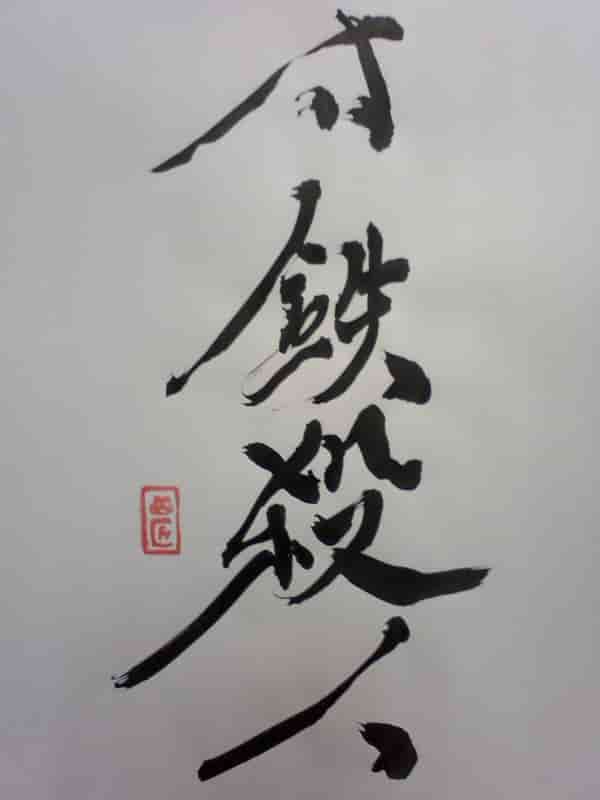 寸鉄殺人